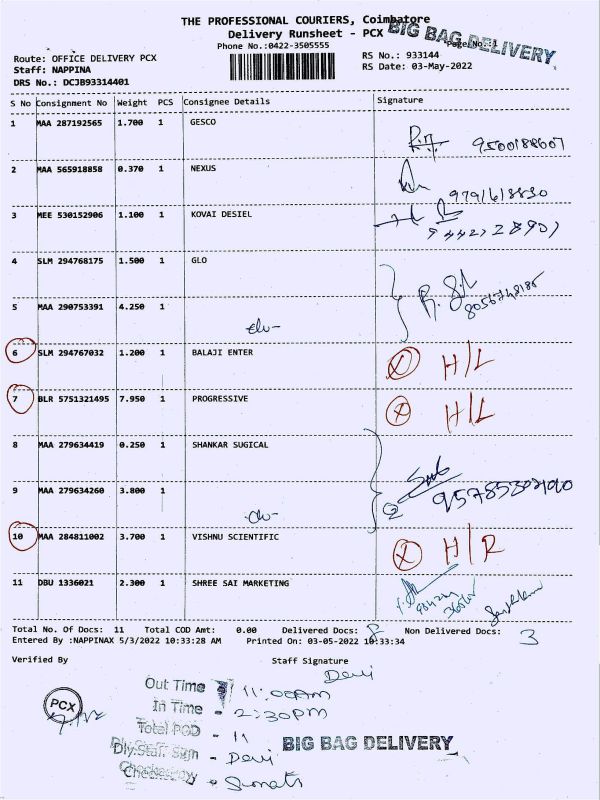 THE PROFESSIONAL COURIERS, Coimbatore
Delivery Runsheet - PCX
BIG BAG DELIVERY
Phone No.:0422-3505555
Page No.:1
Route: OFFICE DELIVERY PCX
RS No.: 933144
Staff: NAPPINA
RS Date: 03-May-2022
DRS No.: DCJB93314401
S No Consignment No Weight PCS Consignee Details Signature
1 MAA 287192565 1.700 1 GESCO
2 MAA 565918858 0.370 1 NEXUS
3 MEE 530152906 1.100 1 KOVAI DESIEL
4 SLM 294768175 1.500 1 GLO
5 MAA 290753391 4.250 1
6 SLM 294767032 1.200 1 BALAJI ENTER H/L
7 BLR 5751321495 7.950 1 PROGRESSIVE H/L
8 MAA 279634419 0.250 1 SHANKAR SUGICAL
9 MAA 279634260 3.800 1
10 MAA 284811002 3.700 1 VISHNU SCIENTIFIC H/R
11 DBU 1336021 2.300 1 SHREE SAI MARKETING
Total No. Of Docs: 11 Total COD Amt: 0.00 Delivered Docs: 8 Non Delivered Docs: 3
Entered By :NAPPINAX 5/3/2022 10:33:28 AM Printed On: 03-05-2022 10:33:34
Verified By Staff Signature
Devi
Out Time 11:00AM
In Time - 2:30PM
PCX
Total POD - 11
Dly.Staff Sign - Devi
BIG BAG DELIVERY
Checked by